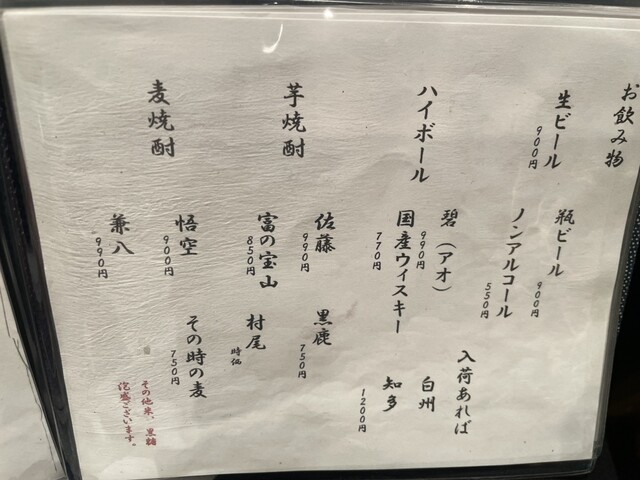 お飲み物
生ビール
900円
瓶ビール
900円
ノンアルコール
550円
ハイボール
碧（アオ）
990円
国産ウィスキー
770円
入荷あれば
白州
知多
1200円
芋焼酎
佐藤
990円
黒鹿
750円
富の宝山
850円
村尾
時価
麦焼酎
悟空
900円
その時の麦
750円
兼八
990円
その他米、黒糖
泡盛ございます。